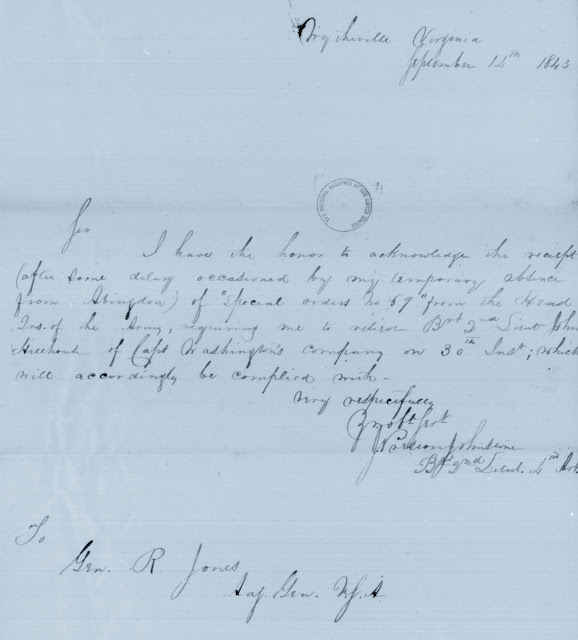 Wytheville Virginia
September 14th 1843
THE NATIONAL ARCHIVES OF THE UNITED STATES
Sir
I have the honor to acknowledge the reciept
(after some delay occasioned by my temporary absence
from Abingdon) of "Special orders no 67" from the Head
Qrs. of the Army, requiring me to relieve Bvt 2nd Lieut John
of Capt Washington's company on 30th Inst; which
will accordingly be complied with -
very respectfully
Yr obt Servt
Johnstone
Bvt 2nd Lieut. 4th Art
To
Gen. R. Jones
Adj. Gen. U.S.A